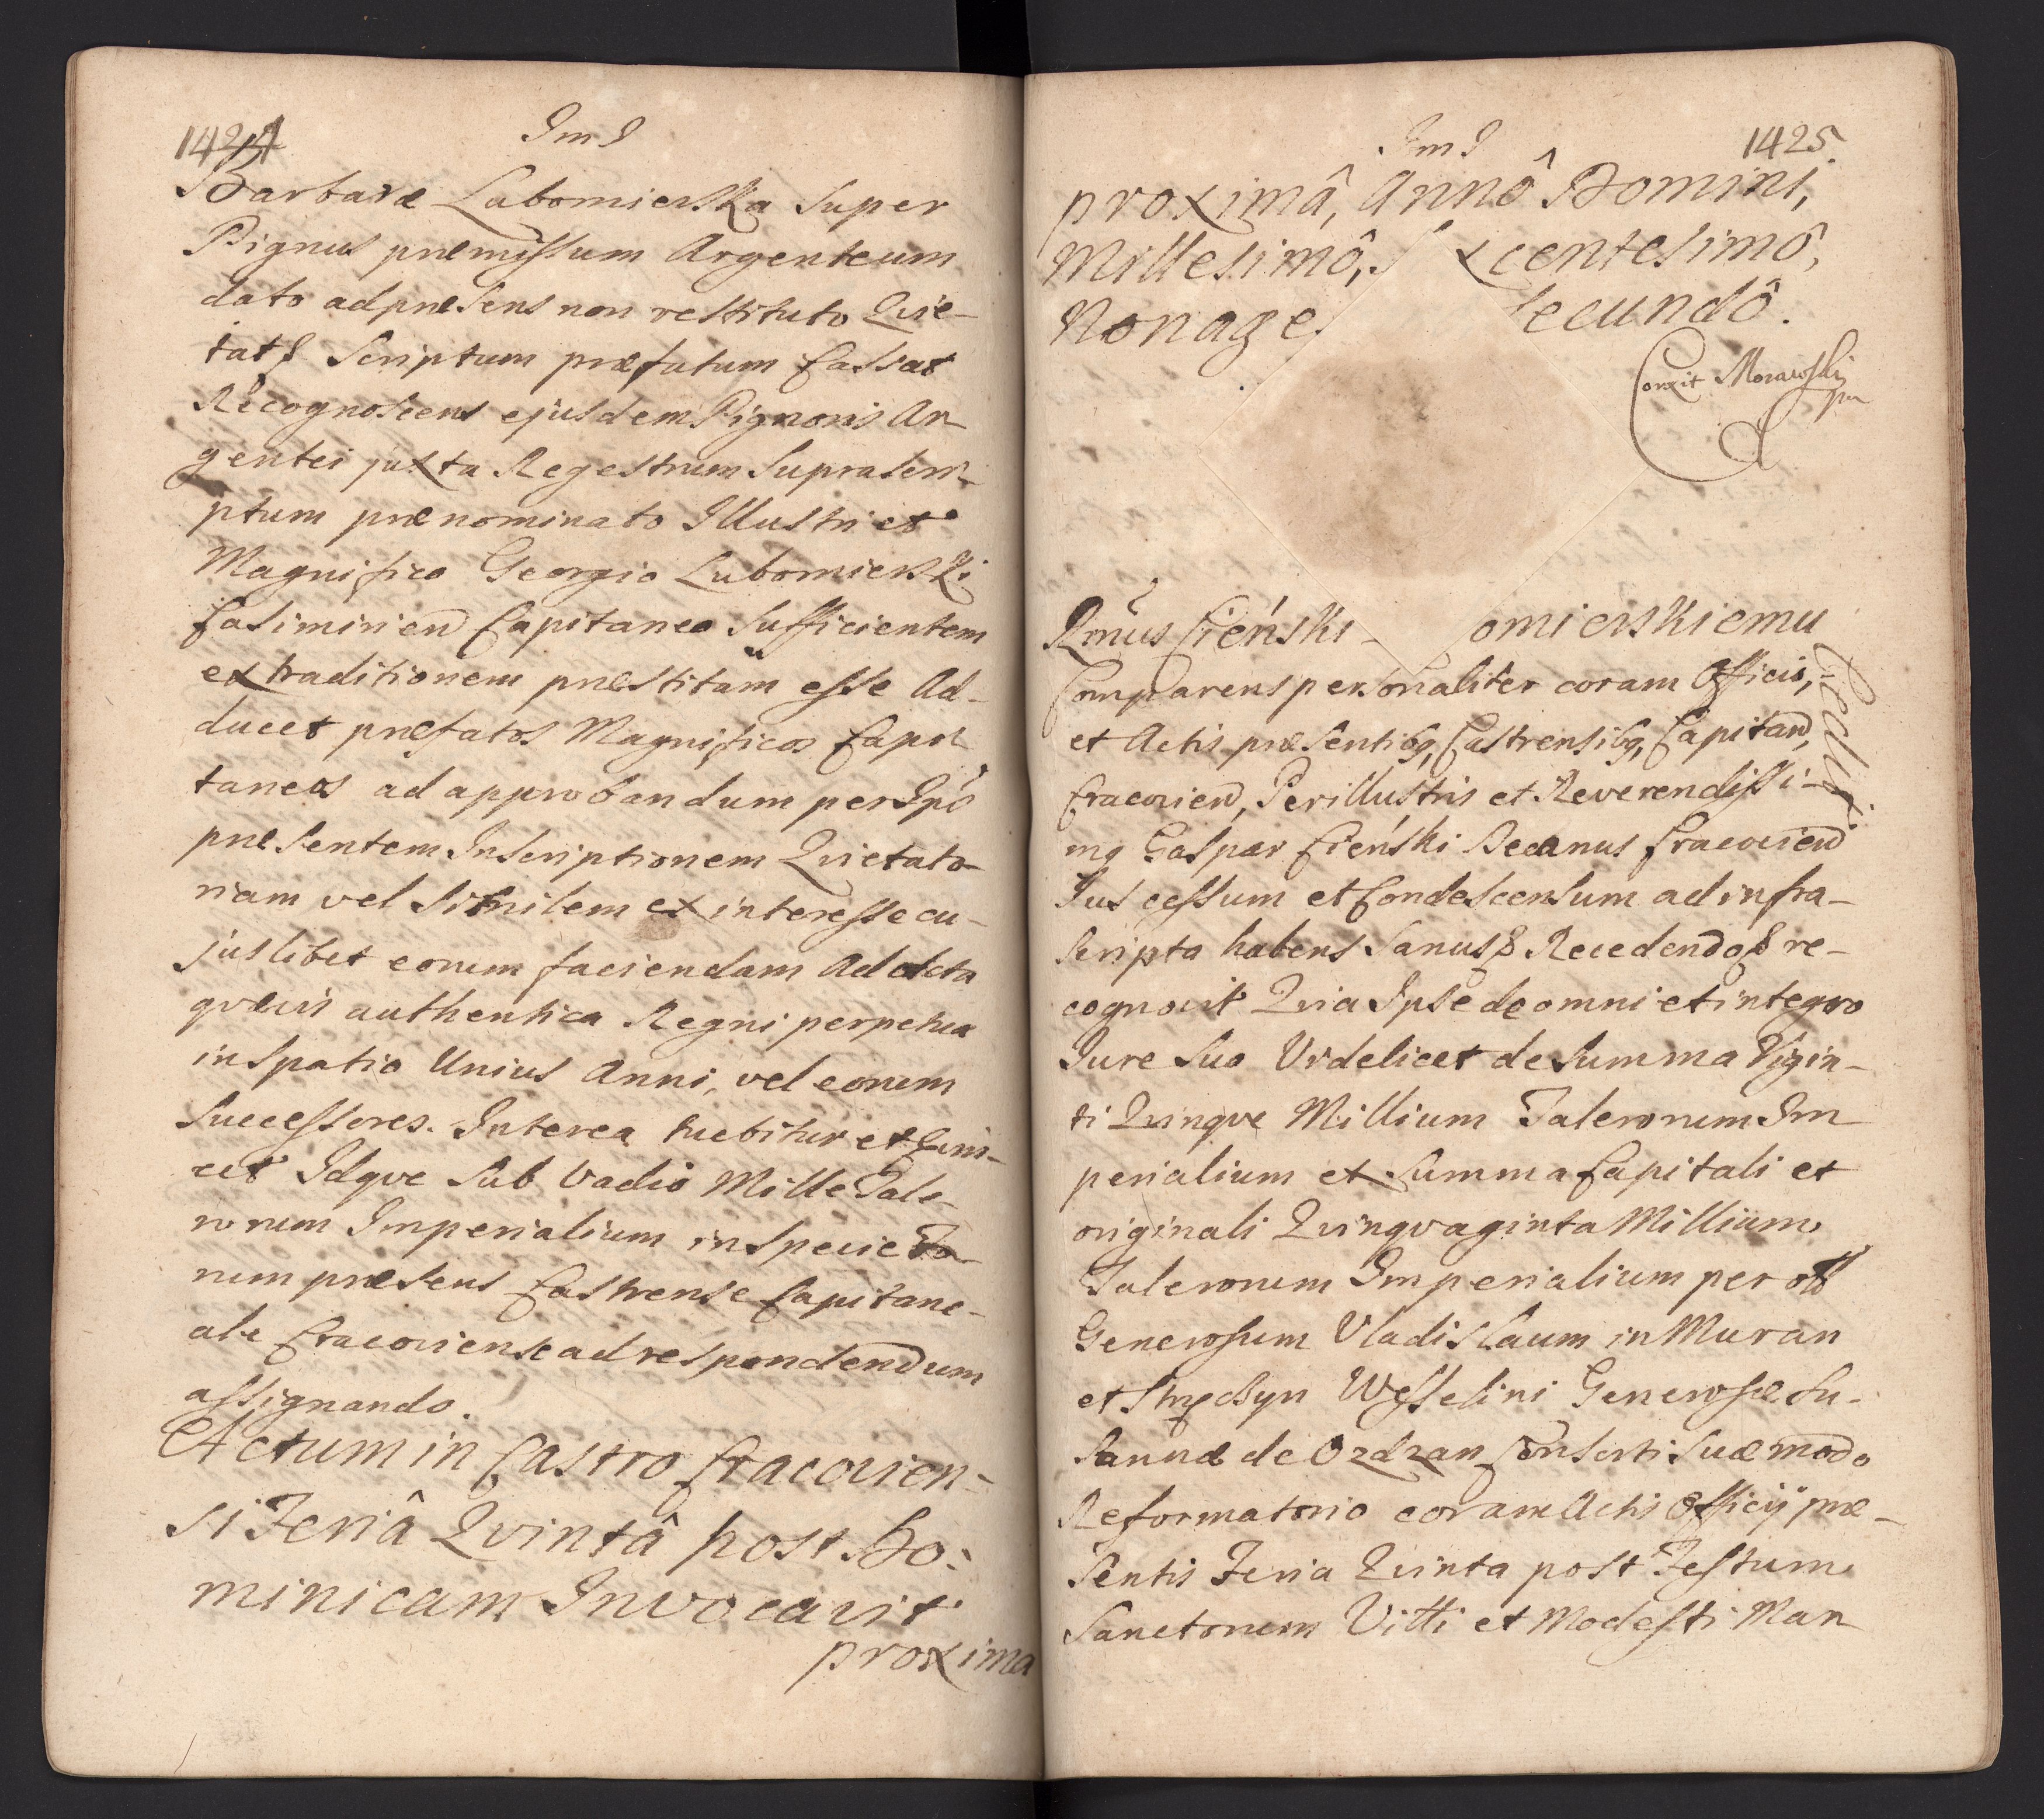 1424
ImJ
Barbaræ Lubomierska super
Pignus præmissum Argenteum
dato ad præsens non restituto Qvie-
tat& Scriptum præfatum Cassat
Recognoscens ejusdem Pignoris Ar
gentei juxta Regestrum supra scri-
ptum prænominato Illustri et
Magnifico Georgio Lubomierski
Casimirien Capitaneo sufficientem
extraditionem præstitam esse Ad-
ducet præfatos Magnificos Capi
taneos ad approbandum per Ipo
præsentem Inscriptionem Qvietato
riam vel similem ex interesse cu-
juslibet eorum faciendam Ad Acta
qvævis authentica Regni perpetua
in spatio Unius Anni, vel eorum
Successores. Interea tuebitur et Evin-
cet Idqve sub Vadio Mille Tale-
rorum Imperialium in specie Fo-
rum præsens Castrense Capitane-
ale Cracoviense ad respondendum
assignando.
Actum in Castro Cracovien-
si Feriâ Qvintâ post Do:
minicam Invocavit
proxima
ImJ
1425.
proximâ, Annô Domini,
Millesimô, S xcentesimô,
Nonage secundô.
Corrxit Morawski
mp
Rmus Cieński - omierskiemu
Cedit
Comparens personaliter coram Officio,
et Actis præsentibq, Castrensibq, Capitan,
Cracovien, Perillustris et Reverendissi-
mq Gaspar Cieński Decanus Cracovien
Jus cessum et Condescensum ad infra-
scripta habens Sanus& Recedendo& re-
cognovit Qvia Ipse de omni et integro
Jure suo Videlicet de summa Vigin-
ti Qvinqve Millium Talerorum Im
perialium ex Summa Capitali et
originali Qvinqvaginta Millium
Talerorum Imperialium per olt
Generosum Vladislaum in Muran
et Strzecsyn Wesselini Generosæ Su-
sannæ de Ozdzan Consorti suæ modo
Reformatorio coram Actis Officij præ-
sentis Feria Qvinta post Festum
Sanctorum Vitti et Modesti Mar